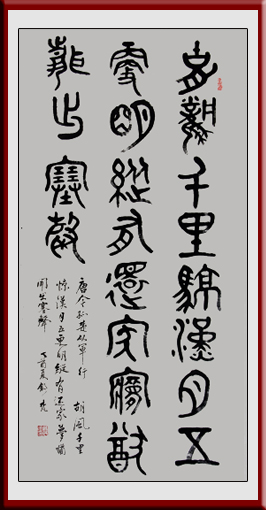 胡風千里驚漢月五
更明縱有還家夢猶
聞出塞聲
唐令狐楚从軍行 胡風千里
惊漢月五更明縱有还家夢猶
聞出塞聲 丁酉夏